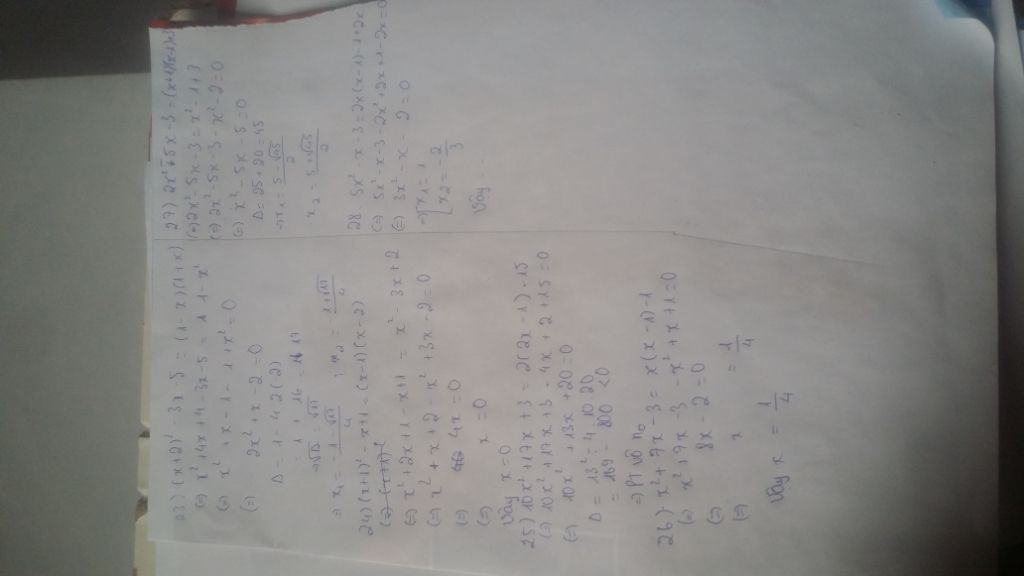 23) (x+2)² - 3x - 5 = (1 - x)(1+x)
(=) x² + 4x + 4 - 3x - 5 = 1 - x²
(=) x² + x - 1 - 1 + x² = 0
(=) 2x² + x - 2 = 0
Δ = 1 - 4.2(-2)
= 1 + 16 = 17
⇒ √Δ = √17
⇒ x₁ = (-1 - √17)/4 ; x₂ = (-1 + √17)/4
24) (x+1)² - x + 1 = (x-1)(x-2)
(=) x² + 2x + 1 - x + 1 = x² - 3x + 2
(=) x² + x + 2 - x² + 3x - 2 = 0
(=) 4x = 0
(=) x = 0
Vậy x = 0
25) 10x² + 17x + 3 = 2(2x - 1) - 15
(=) 10x² + 17x + 3 - 4x + 2 + 15 = 0
(=) 10x² + 13x + 20 = 0
Δ = 13² - 4.10.20
= 169 - 800 < 0
⇒ PT vô no
26) x² + 7x - 3 = x(x - 1) - 1
(=) x² + 7x - 3 - x² + x + 1 = 0
(=) 8x - 2 = 0
(=) x = 1/4
Vậy x = 1/4
27) 2x² - 5x - 3 = (x+1)(x-1)+3
(=) 2x² - 5x - 3 = x² - 1 + 3
(=) 2x² - 5x - 3 - x² - 2 = 0
(=) x² - 5x - 5 = 0
Δ = 25 + 20 = 45
⇒ x₁ = (5 - √45)/2
x₂ = (5 + √45)/2
28 5x² - x - 3 = 2x(x - 1) - 1 + 2x
(=) 5x² - x - 3 - 2x² + 2x + 1 - 2x = 0
(=) 3x² - x - 2 = 0
⇒ [x₁ = 1
x₂ = -2/3
Vậy ...